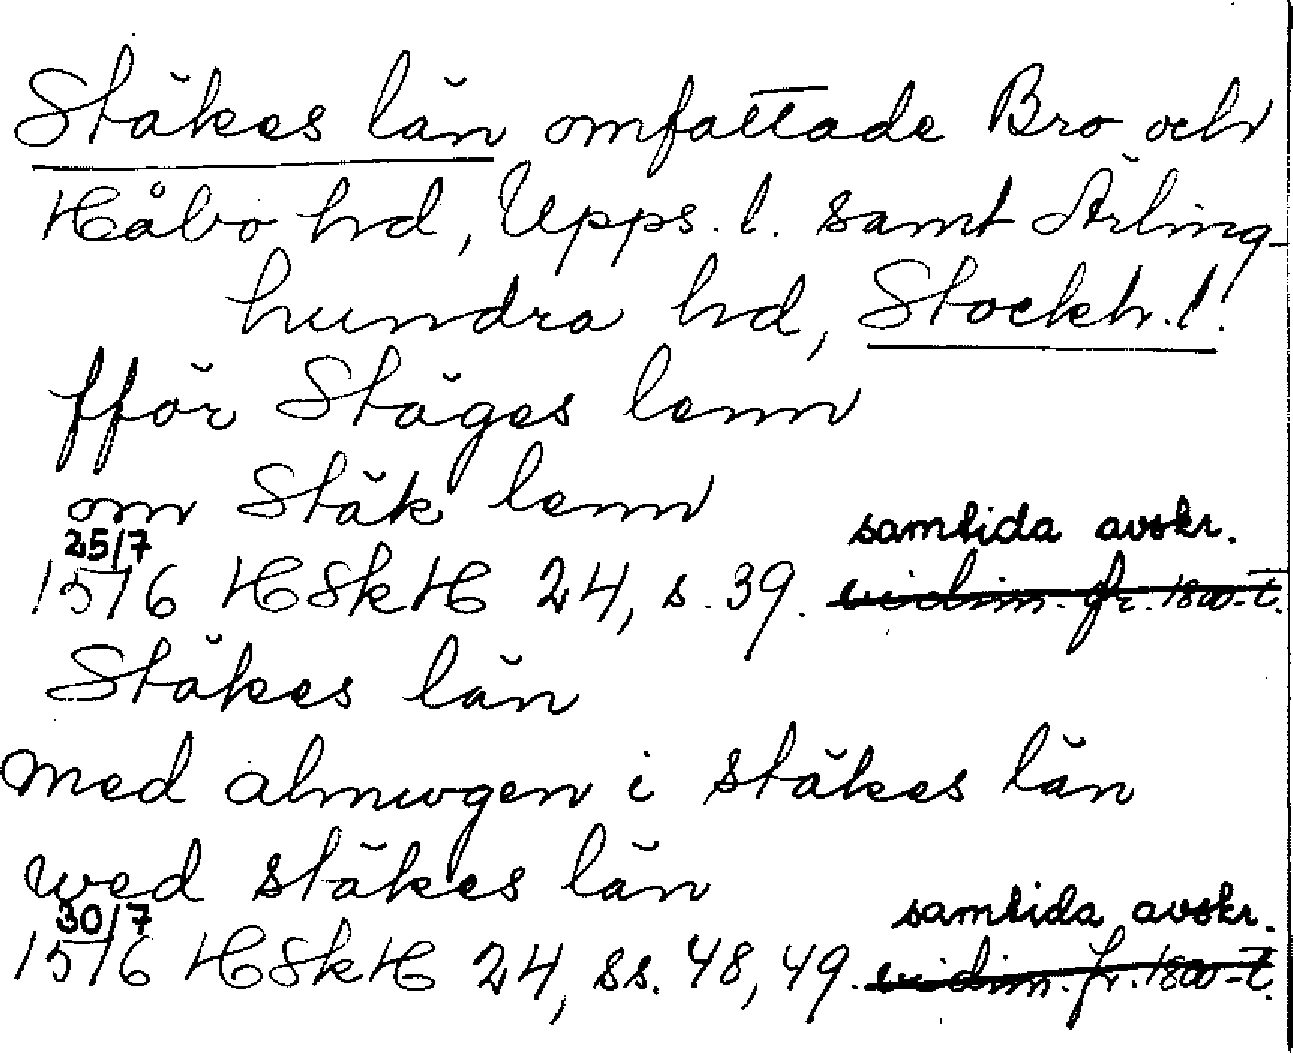 Stäkes län omfattade Bro och
Håbo hd, Upps. l. samt Ärling-
hundra hd, Stockh. l.
fför Stäges lenn
om Stäk lenn
samtida avskr.
25/7
1576 HSkH 24, s. 39. vidim. fr. 1800-t.
Stäkes län
med almwgen i stäkes län
wed stäkes län
samtida avskr.
30/7
1576 HSkH 24, ss. 48, 49. vidim. fr. 1800-t.